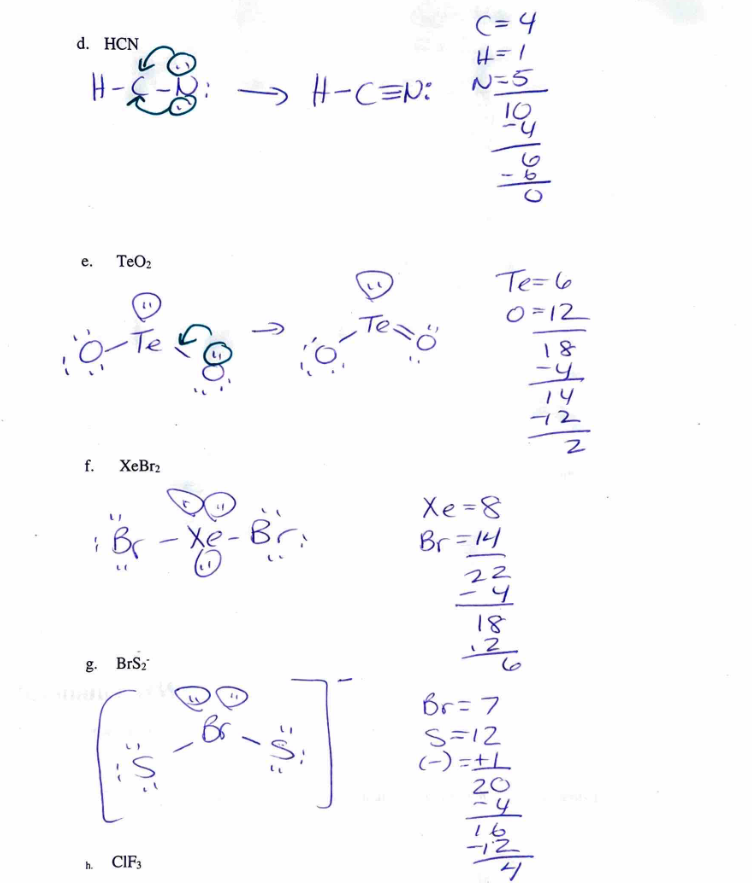 d. HCN
H-C-N: → H-C≡N:
C=4
H=1
N=5
10
-4
6
-6
0
e. TeO₂
:O-Te-O: → :O-Te=O
Te=6
O=12
18
-4
14
-12
2
f. XeBr₂
:Br-Xe-Br:
Xe=8
Br=14
22
-4
18
12
6
g. BrS₂⁻
[:S-Br-S:]⁻
Br=7
S=12
(-)=+1
20
-4
16
-12
4
h. ClF₃